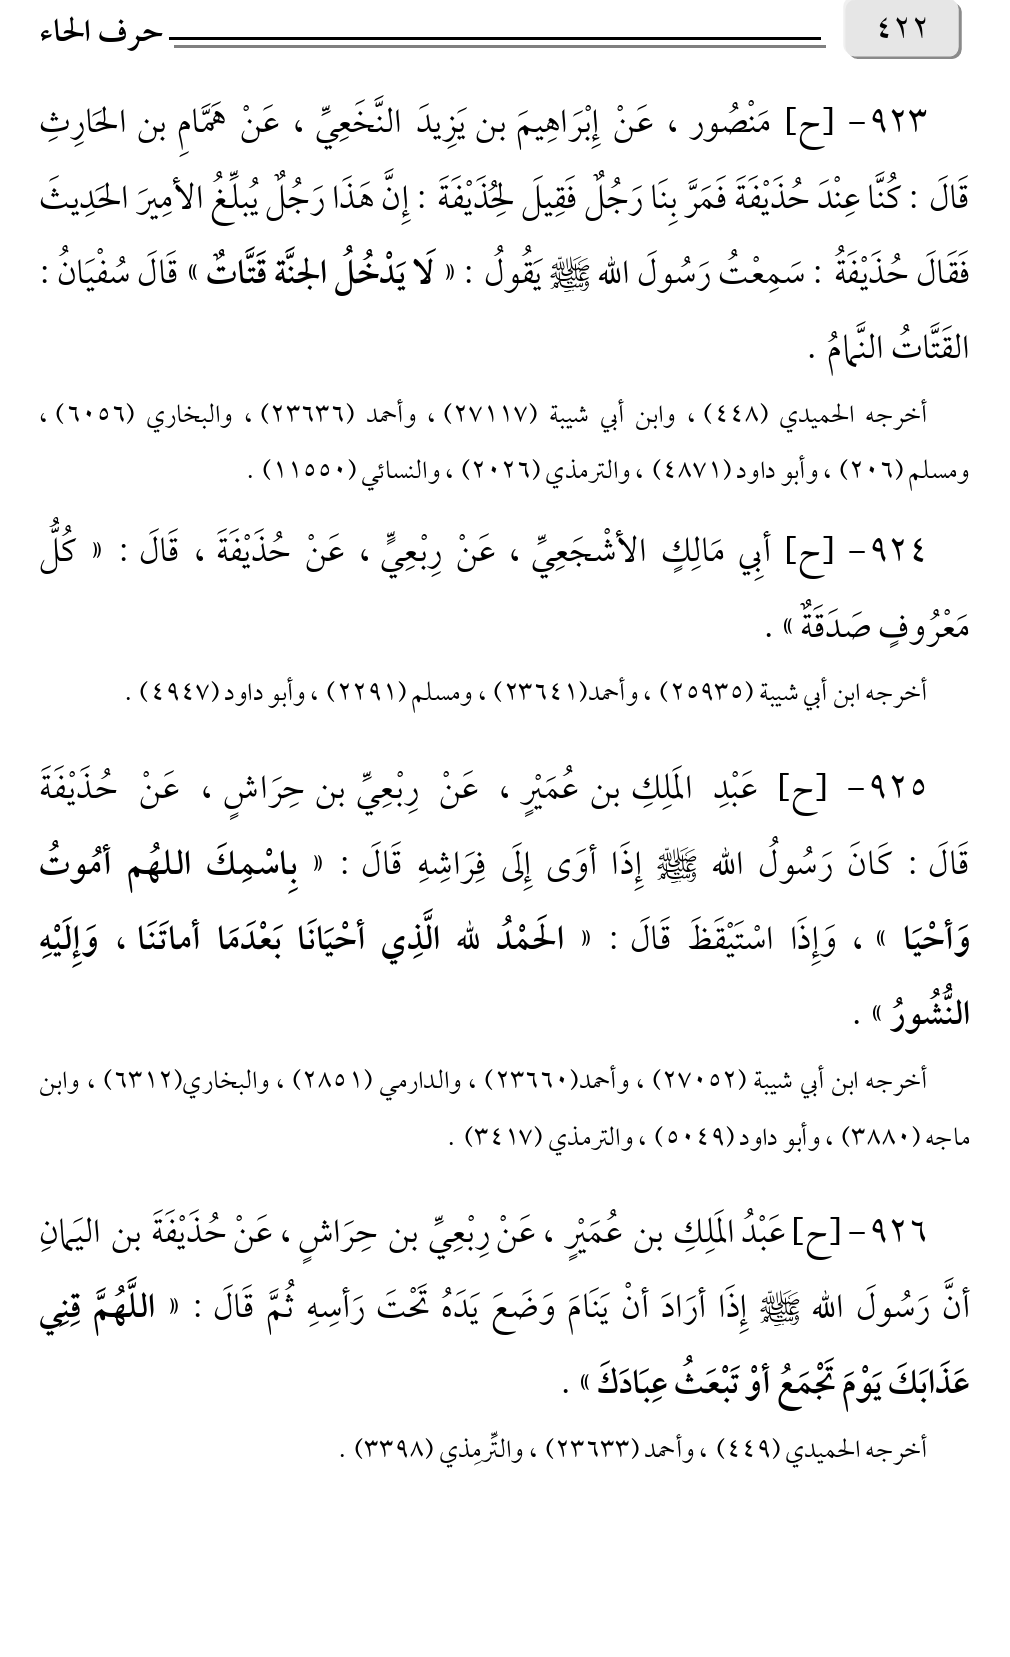 ٤٢٢ حرف الحاء
٩٢٣- [ح] مَنْصُور ، عَنْ إِبْرَاهِيمَ بن يَزِيدَ النَّخَعِيِّ ، عَنْ هَمَّامِ بن الحَارِثِ
قَالَ : كُنَّا عِنْدَ حُذَيْفَةَ فَمَرَّ بِنَا رَجُلٌ فَقِيلَ لِحُذَيْفَةَ : إِنَّ هَذَا رَجُلٌ يُبلِّغُ الأمِيرَ الحَدِيثَ
فَقَالَ حُذَيْفَةُ : سَمِعْتُ رَسُولَ الله ﷺ يَقُولُ : « لَا يَدْخُلُ الجنَّة قَتَّاتٌ » قَالَ سُفْيَانُ :
القَتَّاتُ النَّمامُ .
أخرجه الحميدي (٤٤٨) ، وابن أبي شيبة (٢٧١١٧) ، وأحمد (٢٣٦٣٦) ، والبخاري (٦٠٥٦) ،
ومسلم (٢٠٦) ، وأبو داود (٤٨٧١) ، والترمذي (٢٠٢٦) ، والنسائي (١١٥٥٠) .
٩٢٤- [ح] أبِي مَالِكٍ الأشْجَعِيِّ ، عَنْ رِبْعِيٍّ ، عَنْ حُذَيْفَةَ ، قَالَ : « كُلُّ
مَعْرُوفٍ صَدَقَةٌ » .
أخرجه ابن أبي شيبة (٢٥٩٣٥) ، وأحمد(٢٣٦٤١) ، ومسلم (٢٢٩١) ، وأبو داود (٤٩٤٧) .
٩٢٥- [ح] عَبْدِ المَلِكِ بن عُمَيْرٍ ، عَنْ رِبْعِيِّ بن حِرَاشٍ ، عَنْ حُذَيْفَةَ
قَالَ : كَانَ رَسُولُ الله ﷺ إِذَا أوَى إِلَى فِرَاشِهِ قَالَ : « بِاسْمِكَ اللهُم أمُوتُ
وَأحْيَا » ، وَإِذَا اسْتَيْقَظَ قَالَ : « الَحَمْدُ لله الَّذِي أحْيَانَا بَعْدَمَا أماتَنَا ، وَإِلَيْهِ
النُّشُورُ » .
أخرجه ابن أبي شيبة (٢٧٠٥٢) ، وأحمد(٢٣٦٦٠) ، والدارمي (٢٨٥١) ، والبخاري(٦٣١٢) ، وابن
ماجه (٣٨٨٠) ، وأبو داود (٥٠٤٩) ، والترمذي (٣٤١٧) .
٩٢٦- [ح] عَبْدُ المَلِكِ بن عُمَيْرٍ ، عَنْ رِبْعِيِّ بن حِرَاشٍ ، عَنْ حُذَيْفَةَ بن اليَمانِ
أنَّ رَسُولَ الله ﷺ إِذَا أرَادَ أنْ يَنَامَ وَضَعَ يَدَهُ تَحْتَ رَأسِهِ ثُمَّ قَالَ : « اللَّهُمَّ قِنِي
عَذَابَكَ يَوْمَ تَجْمَعُ أوْ تَبْعَثُ عِبَادَكَ » .
أخرجه الحميدي (٤٤٩) ، وأحمد (٢٣٦٣٣) ، والتِّرمِذي (٣٣٩٨) .